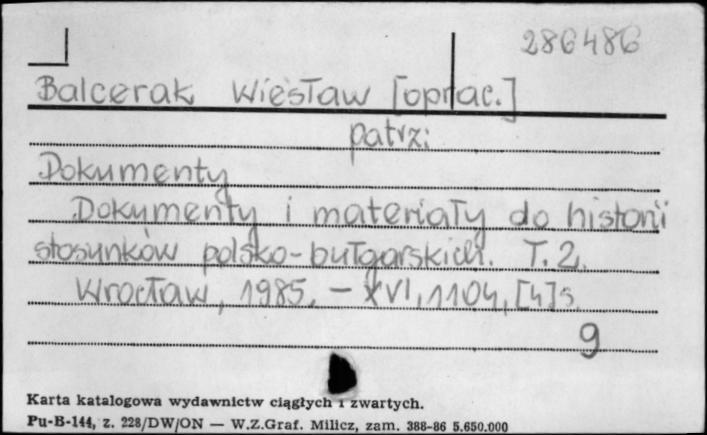 286486
Balcerak Wiesław [oprac.]
patrz:
Dokumenty
Dokumenty i materiały do historii
stosunków polsko-bułgarskich. T. 2.
Wrocław, 1985. - XVI, 1104, [4] s.
9
Karta katalogowa wydawnictw ciągłych i zwartych.
Pu-B-144, z. 228/DW/ON — W.Z.Graf. Milicz, zam. 388-86 5.650.000